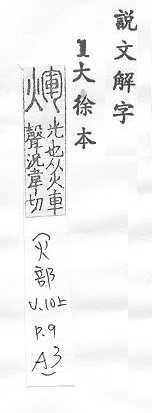 說文解字
1大徐本
煇
光也从火軍
聲況韋切
(火部
V.10上
P.9
A3)